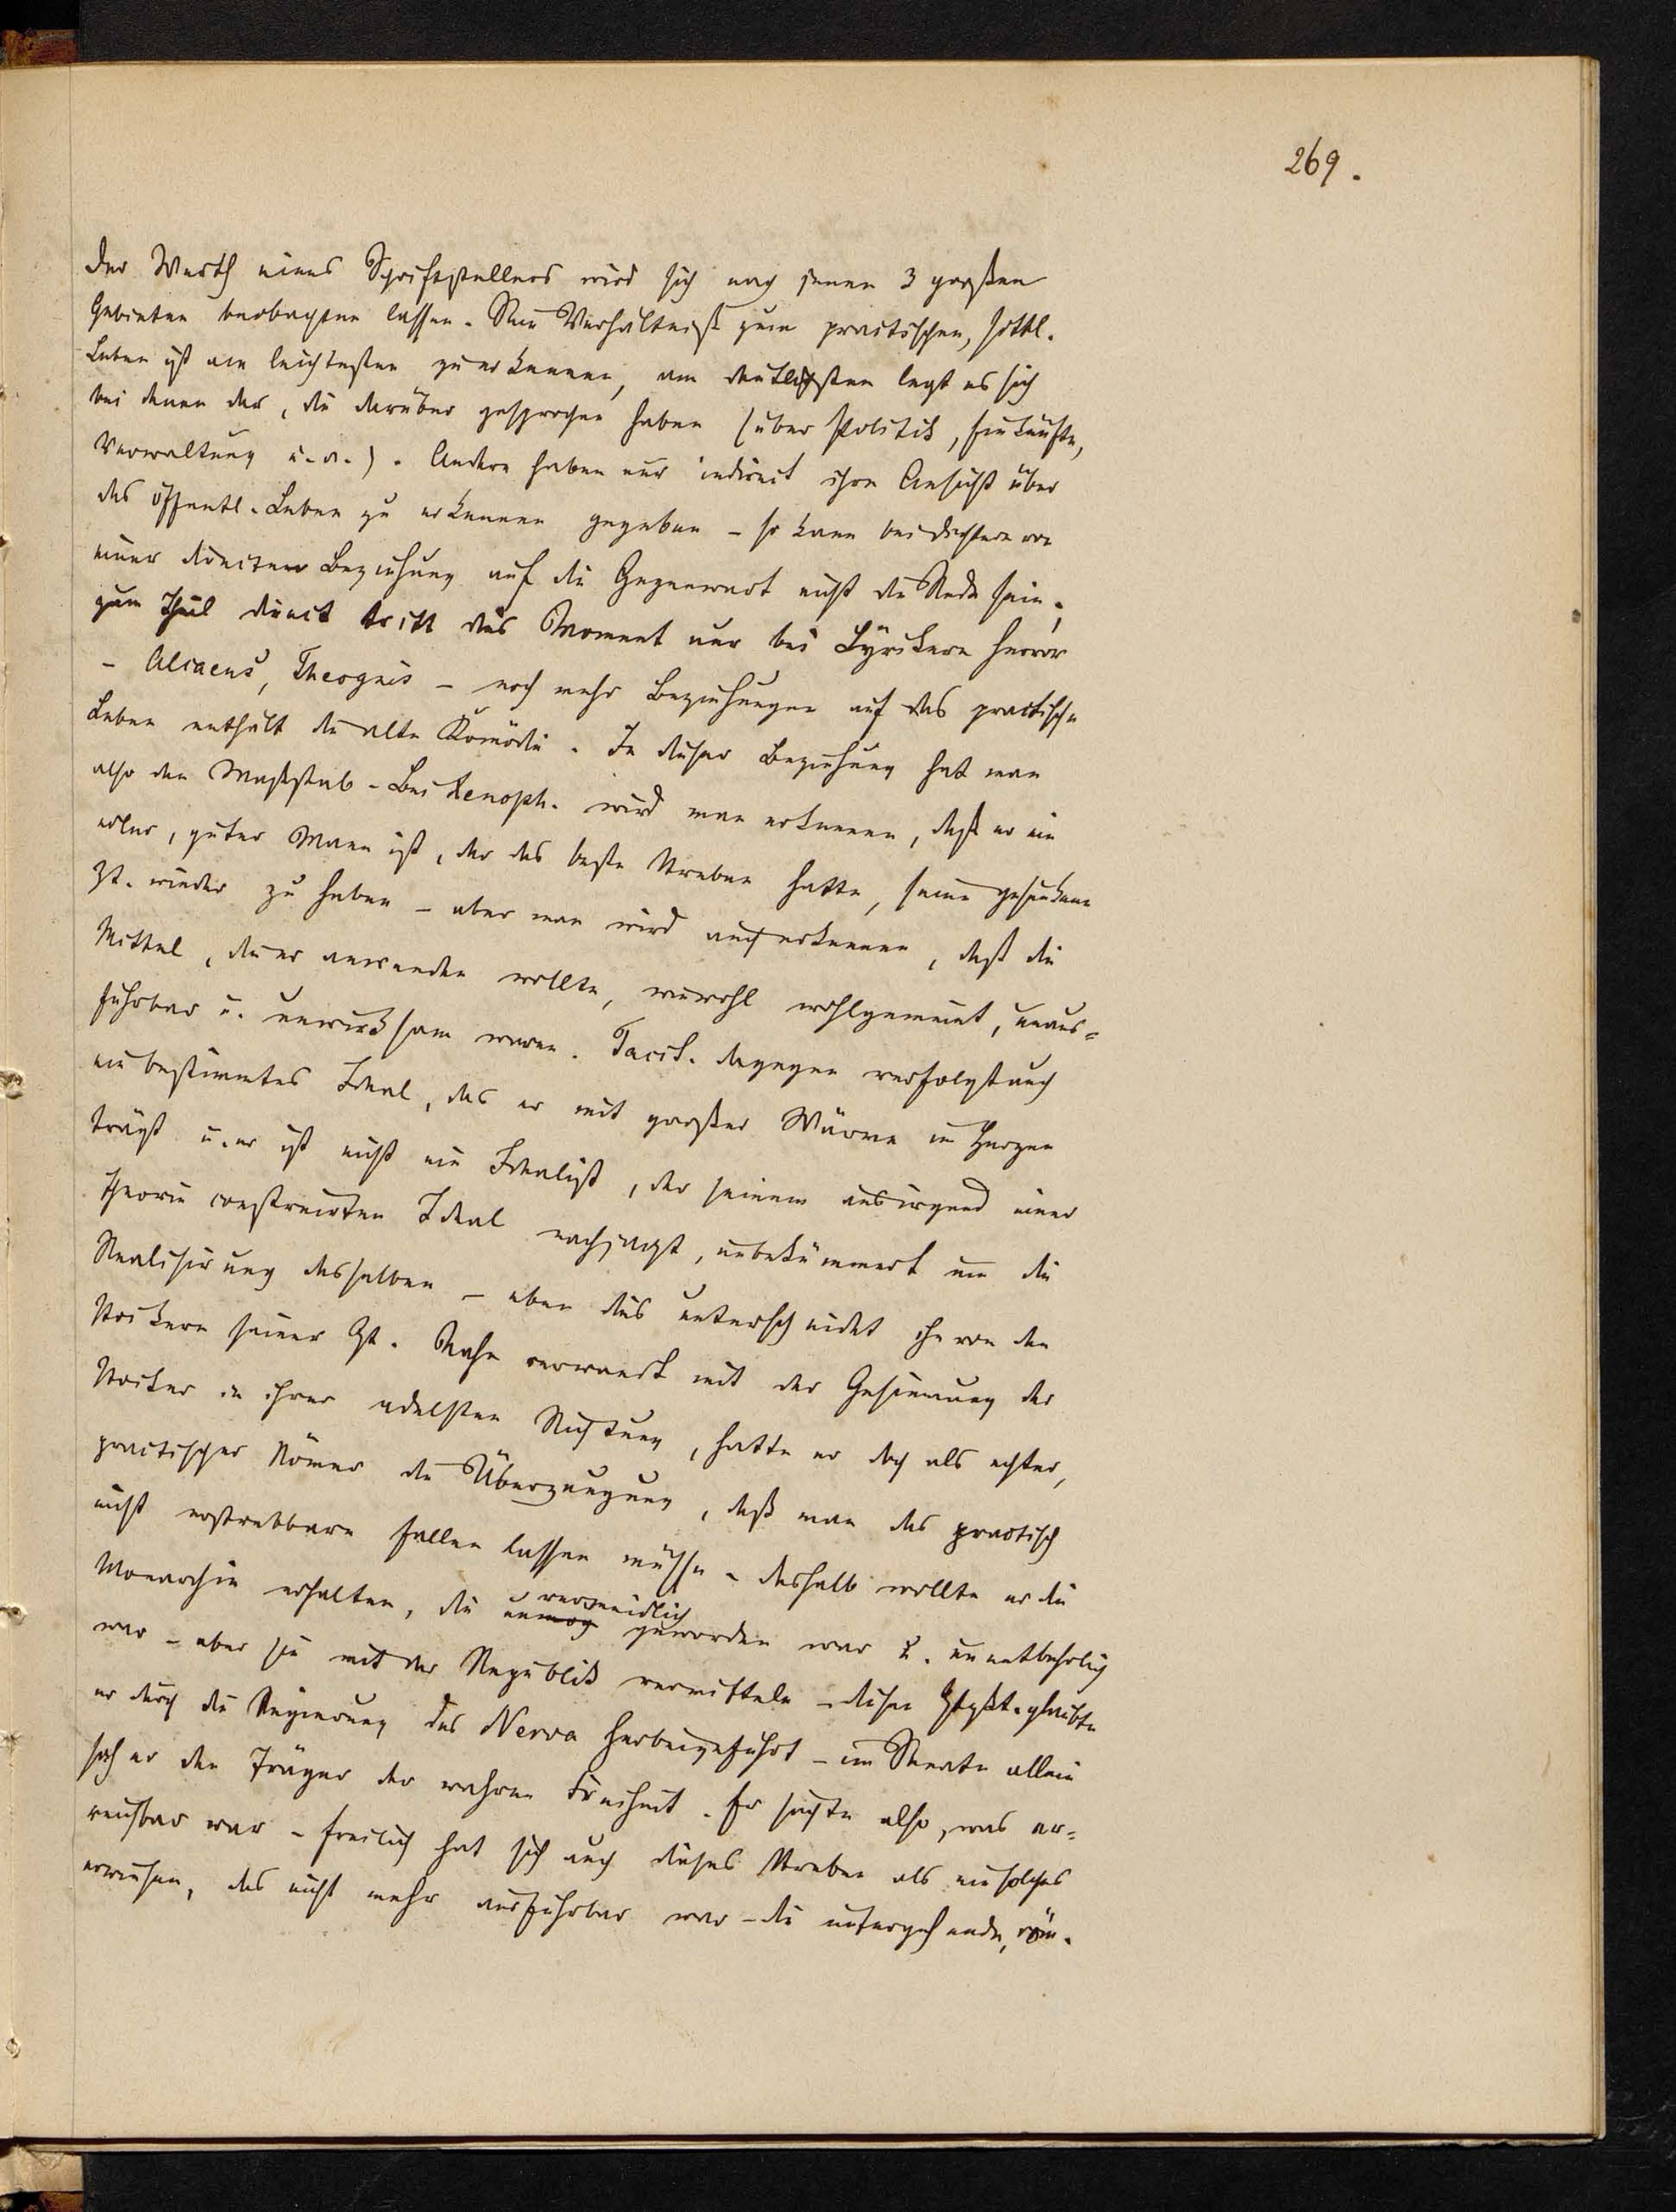 269.
Der Werth eines Schriftstellers wird sich nach jenen 3 großen
Gebieten beobachten lassen. Sein Verhältniß zum practischen, sittl.
Leben ist am leichtesten zu erkennen, am deutlichsten legt es sich
bei denen dar, die darüber gesprochen haben (über Politik, Einkünfte,
Verwaltung u. a.). Andere haben nur indirect ihre Ansicht über
das öffentl. Leben zu erkennen gegeben – so kann bei Dichtern von
einer directen Beziehung auf die Gegenwart nicht die Rede sein,
zum Theil direct tritt dies Moment nur bei Lyrikern hervor
– Alcaeus, Theognis – noch mehr Beziehungen auf das practische
Leben enthält die alte Komödie. In dieser Beziehung hat man
also den Maßstab – Bei Xenoph. wird man erkennen, daß er ein
edler, guter Mann ist, der das beste Streben hatte, seine gesunkene
Zt. wieder zu heben – aber man wird auch erkennen, daß die
Mittel, die er anwenden wollte, wiewohl wohlgemeint, unaus=
führbar u. unwirksam waren. Tacit. dagegen verfolgt auch
ein bestimmtes Ideal, das er mit großer Wärme im Herzen
trägt u. er ist nicht ein Idealist, der seinem aus irgend einer
Theorie construirten Ideal nachjagt, unbekümmert um die
Realisirung desselben – eben dies unterscheidet ihn von den
Stoikern seiner Zt. Nahe verwandt mit der Gesinnung der
Stoiker in ihrer edelsten Richtung, hatte er doch als echter,
practischer Römer die Überzeugung, daß man das practisch
nicht erstrebbare fallen lassen müsse – deshalb wollte er die
Monarchie erhalten, die unvermeidlich geworden war u. unentbehrlich
war – aber sie mit der Republik vermitteln – diesen glaubte
er durch die Regierung des Nerva herbeigeführt – im Senate allein
sah er den Träger der wahren Freiheit. Er suchte also, was er=
reichbar war – freilich hat sich auch dieses Streben als ein solches
erwiesen, das nicht mehr ausführbar war – die untergehende, röm.